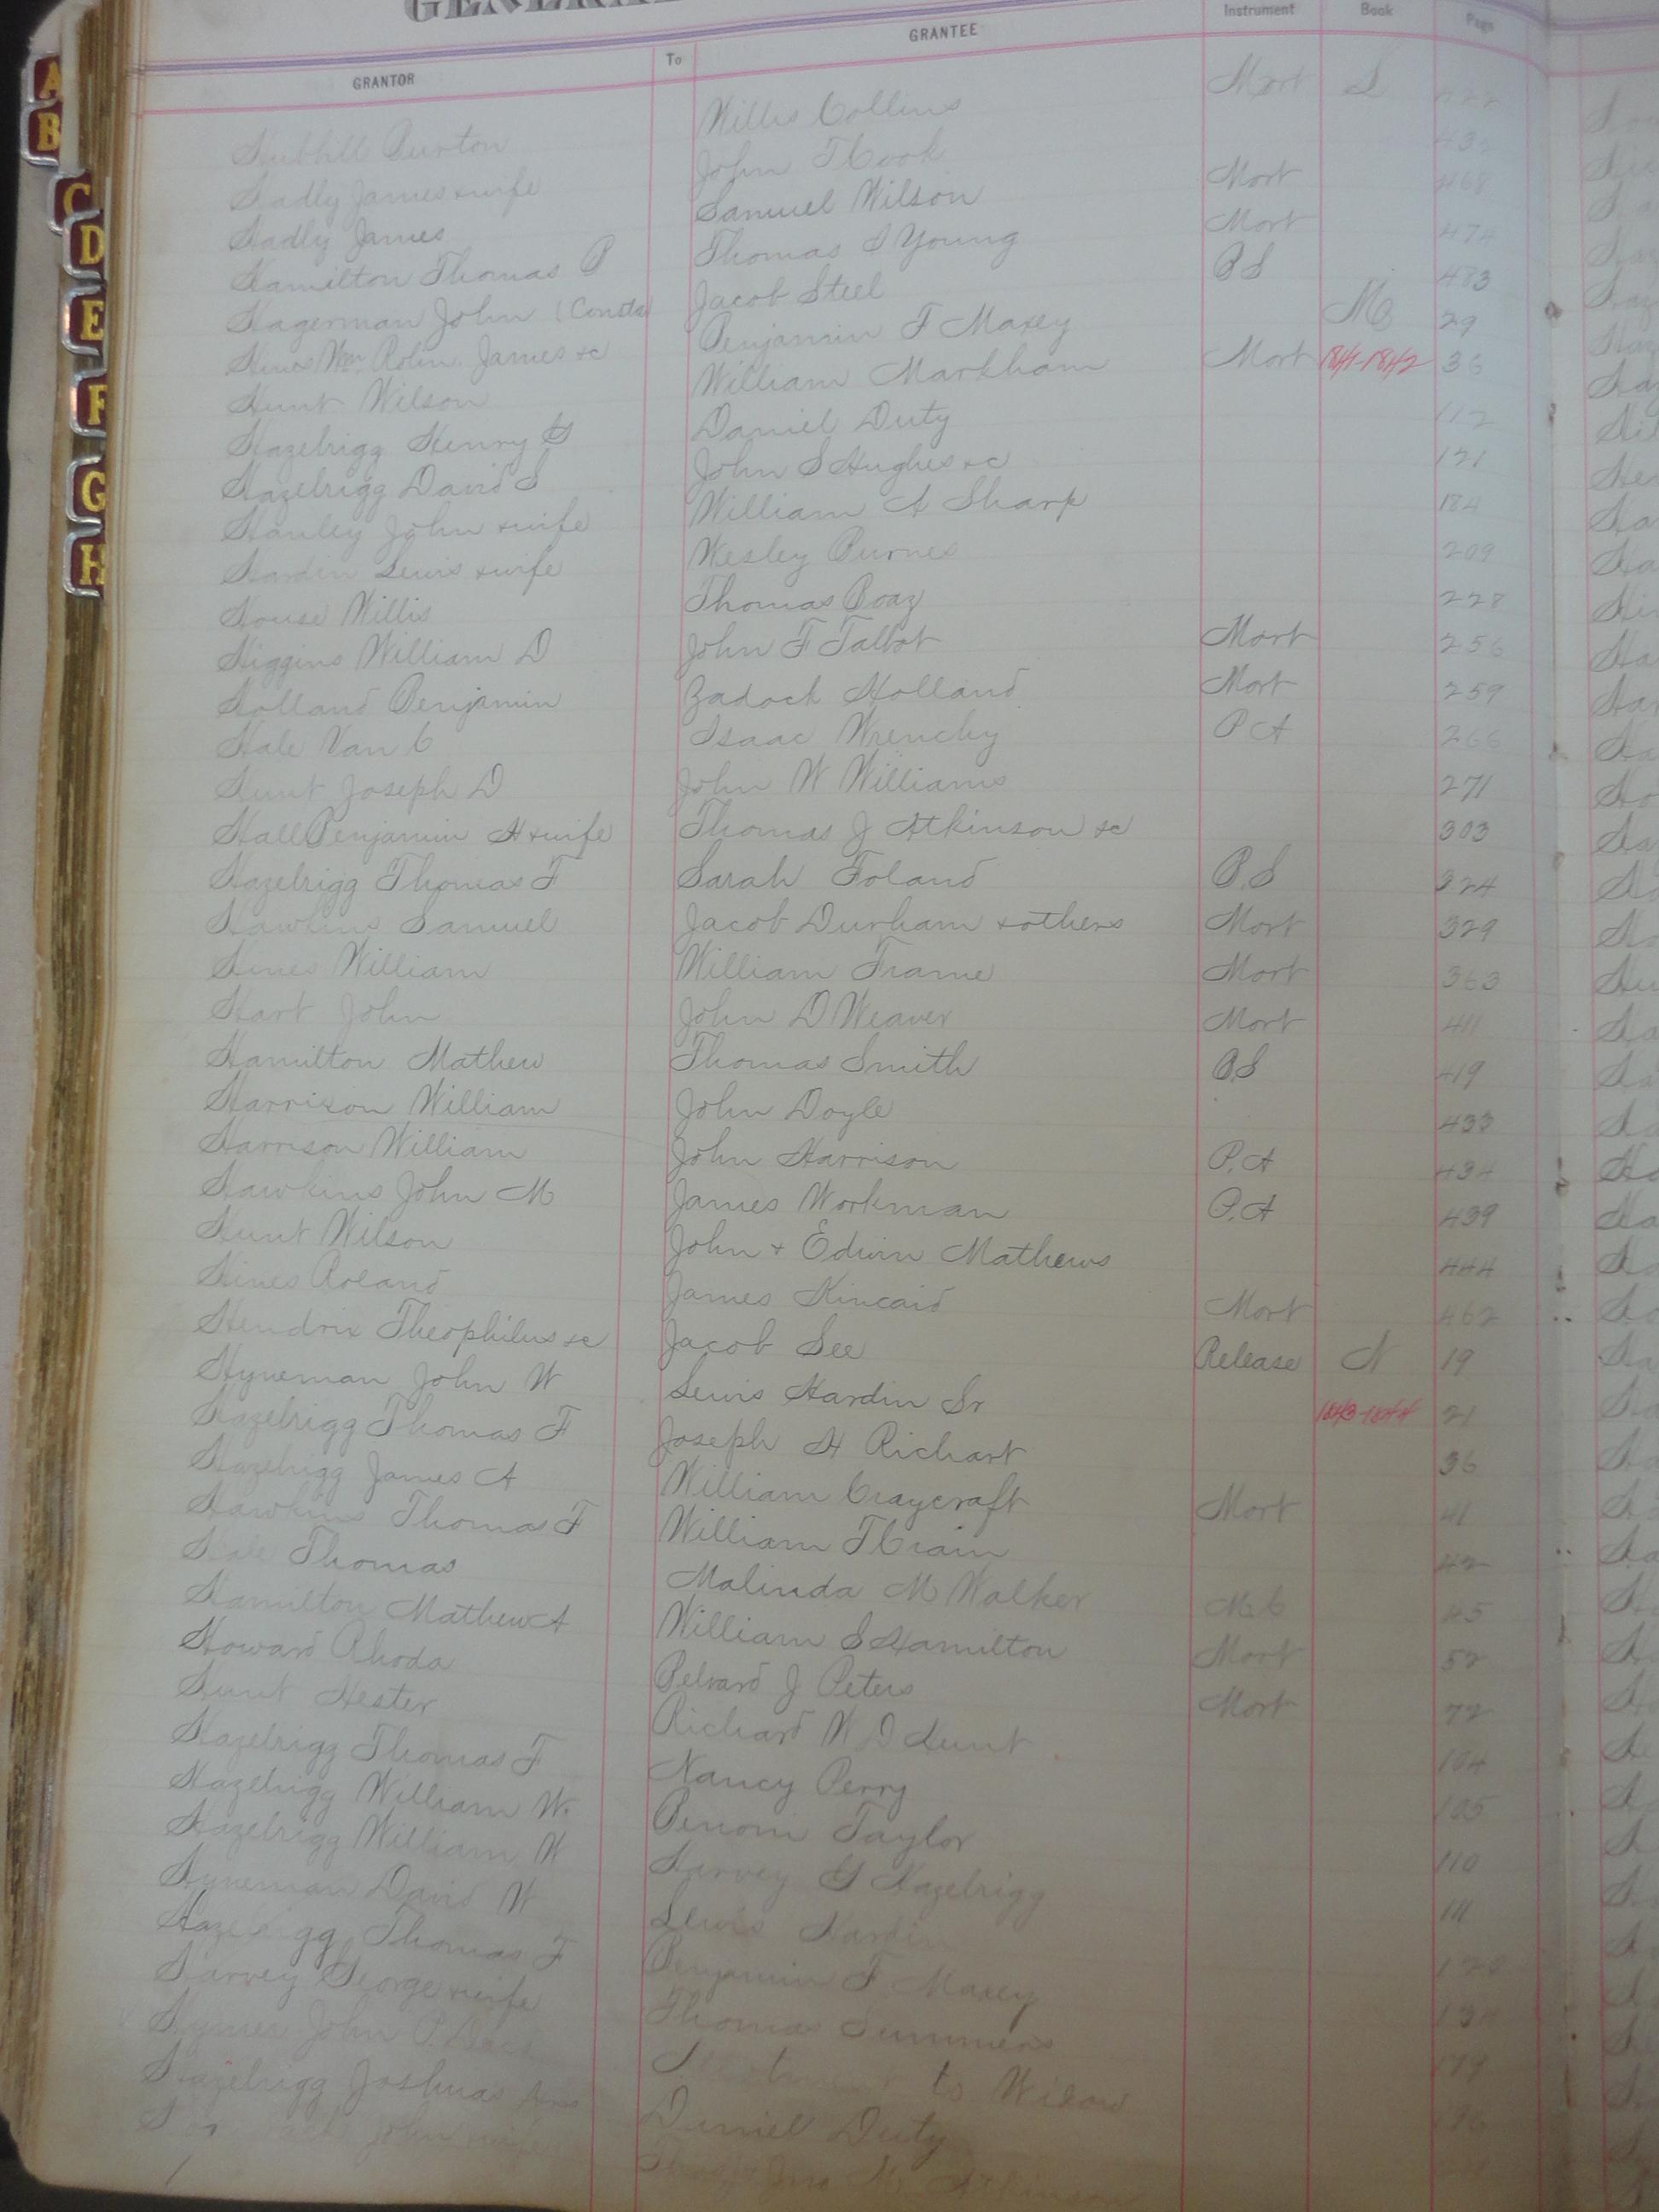 GENERAL
GRANTOR To GRANTEE Instrument Book Page
Burton Willis Collins Mort S 422
Hadly James & wife John T Cook
Hadly James Samuel Wilson Mort 468
Hamilton Thomas P Thomas I Young Mort 474
Hagerman John (Consta Jacob Steel B S 483
Hines Wm, Rolin, James &c Benjamin F Maxey M 29
Hunt Wilson William Markham Mort 1841-1842 36
Hazelrigg Henry G Daniel Duty 112
Hazelrigg David S John S Hughes &c 121
Hanley John & wife William A Sharp 184
Hardin Lewis & wife Wesley Burnes 209
House Willis Thomas Boaz 228
Higgins William D John F Talbot Mort 256
Holland Benjamin Zadock Holland Mort 259
Hale Van C Isaac Wrenchy P A 266
Hunt Joseph D John W Williams 271
Hall Benjamin H & wife Thomas J Atkinson &c 303
Hazelrigg Thomas F Sarah Foland B.S 324
Hawkins Samuel Jacob Durham & others Mort 329
Hines William William Frame Mort 363
Hart John John D Weaver Mort 411
Hamilton Mathew Thomas Smith B.S 419
Harrison William John Doyle 433
Harrison William John Harrison P.A 434
Hawkins John M James Workman P.A 439
Hunt Wilson John + Edwin Mathews 444
Hines Roland James Kincaid Mort 462
Hendrix Theophilus &c Jacob See Release N 19
Hyneman John W Lewis Hardin Sr 1843-1844 21
Hazelrigg Thomas F Joseph H Richart 36
Hazelrigg James A William Craycraft Mort 41
Hawkins Thomas F William T Crain 42
Hale Thomas Malinda M Walker M.C 45
Hamilton Mathew A William S Hamilton Mort 52
Howard Rhoda Belvard J Peters Mort 72
Hunt Hester Richard W D Hunt 104
Hazelrigg Thomas F Nancy Perry 105
Hazelrigg William W. Benom Taylor 110
Hazelrigg William W Harvey G Hazelrigg 111
Hyneman David W Lewis Hardin
Hazelrigg Thomas F Benjamin F Maxey
Harvey George & wife Thomas Summers 179
John P. to Widow
Hazelrigg Joshua Daniel Duty
John Atkinson
A
B
C
D
E
F
G
H